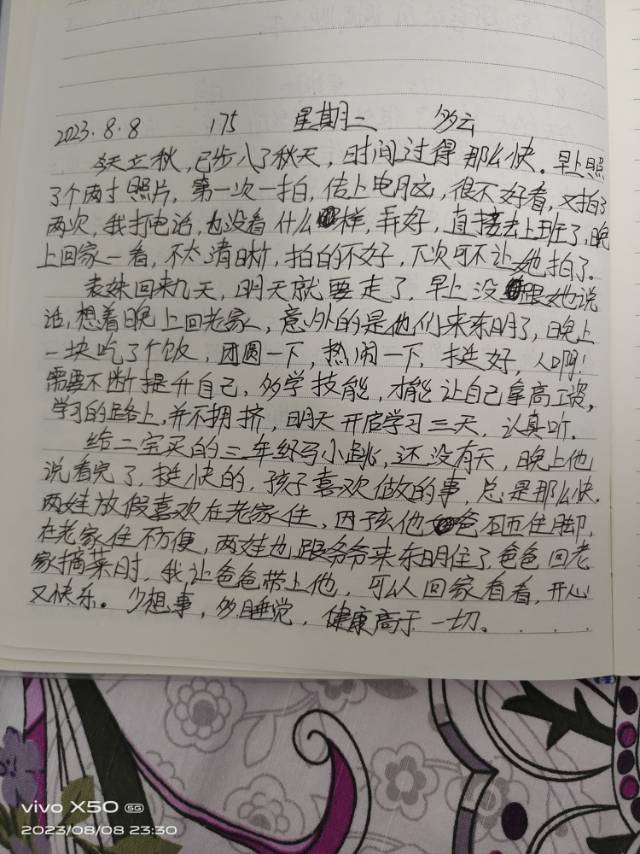 2023.8.8 175 星期二 多云
今天立秋,已步入了秋天,时间过得那么快。早上照
了个两寸照片,第一次一拍,传上电脑,很不好看,又拍了
两次,我打电话,也没看什么样,弄好,直接去上班了,晚
上回家一看,不太清晰,拍的不好,下次可不让她拍了。
表妹回来几天,明天就要走了,早上没跟她说
话,想着晚上回老家,意外的是他们来东明了,晚上
一块吃了个饭,团圆一下,热闹一下,挺好,人啊!
需要不断提升自己,多学技能,才能让自己拿高工资,
学习的路上,并不拥挤,明天开启学习三天,认真听。
给二宝买的三年级马小跳,还没有天,晚上他
说看完了,挺快的,孩子喜欢做的事,总是那么快,
两娃放假喜欢在老家住,因孩他爸砸住脚,
在老家住不方便,两娃也跟爷爷来东明住了,爸爸回老
家摘菜时,我让爸爸带上他,可以回家看看,开心
又快乐。少想事,多睡觉,健康高于一切。....
vivo X50 5G
2023/08/08 23:30